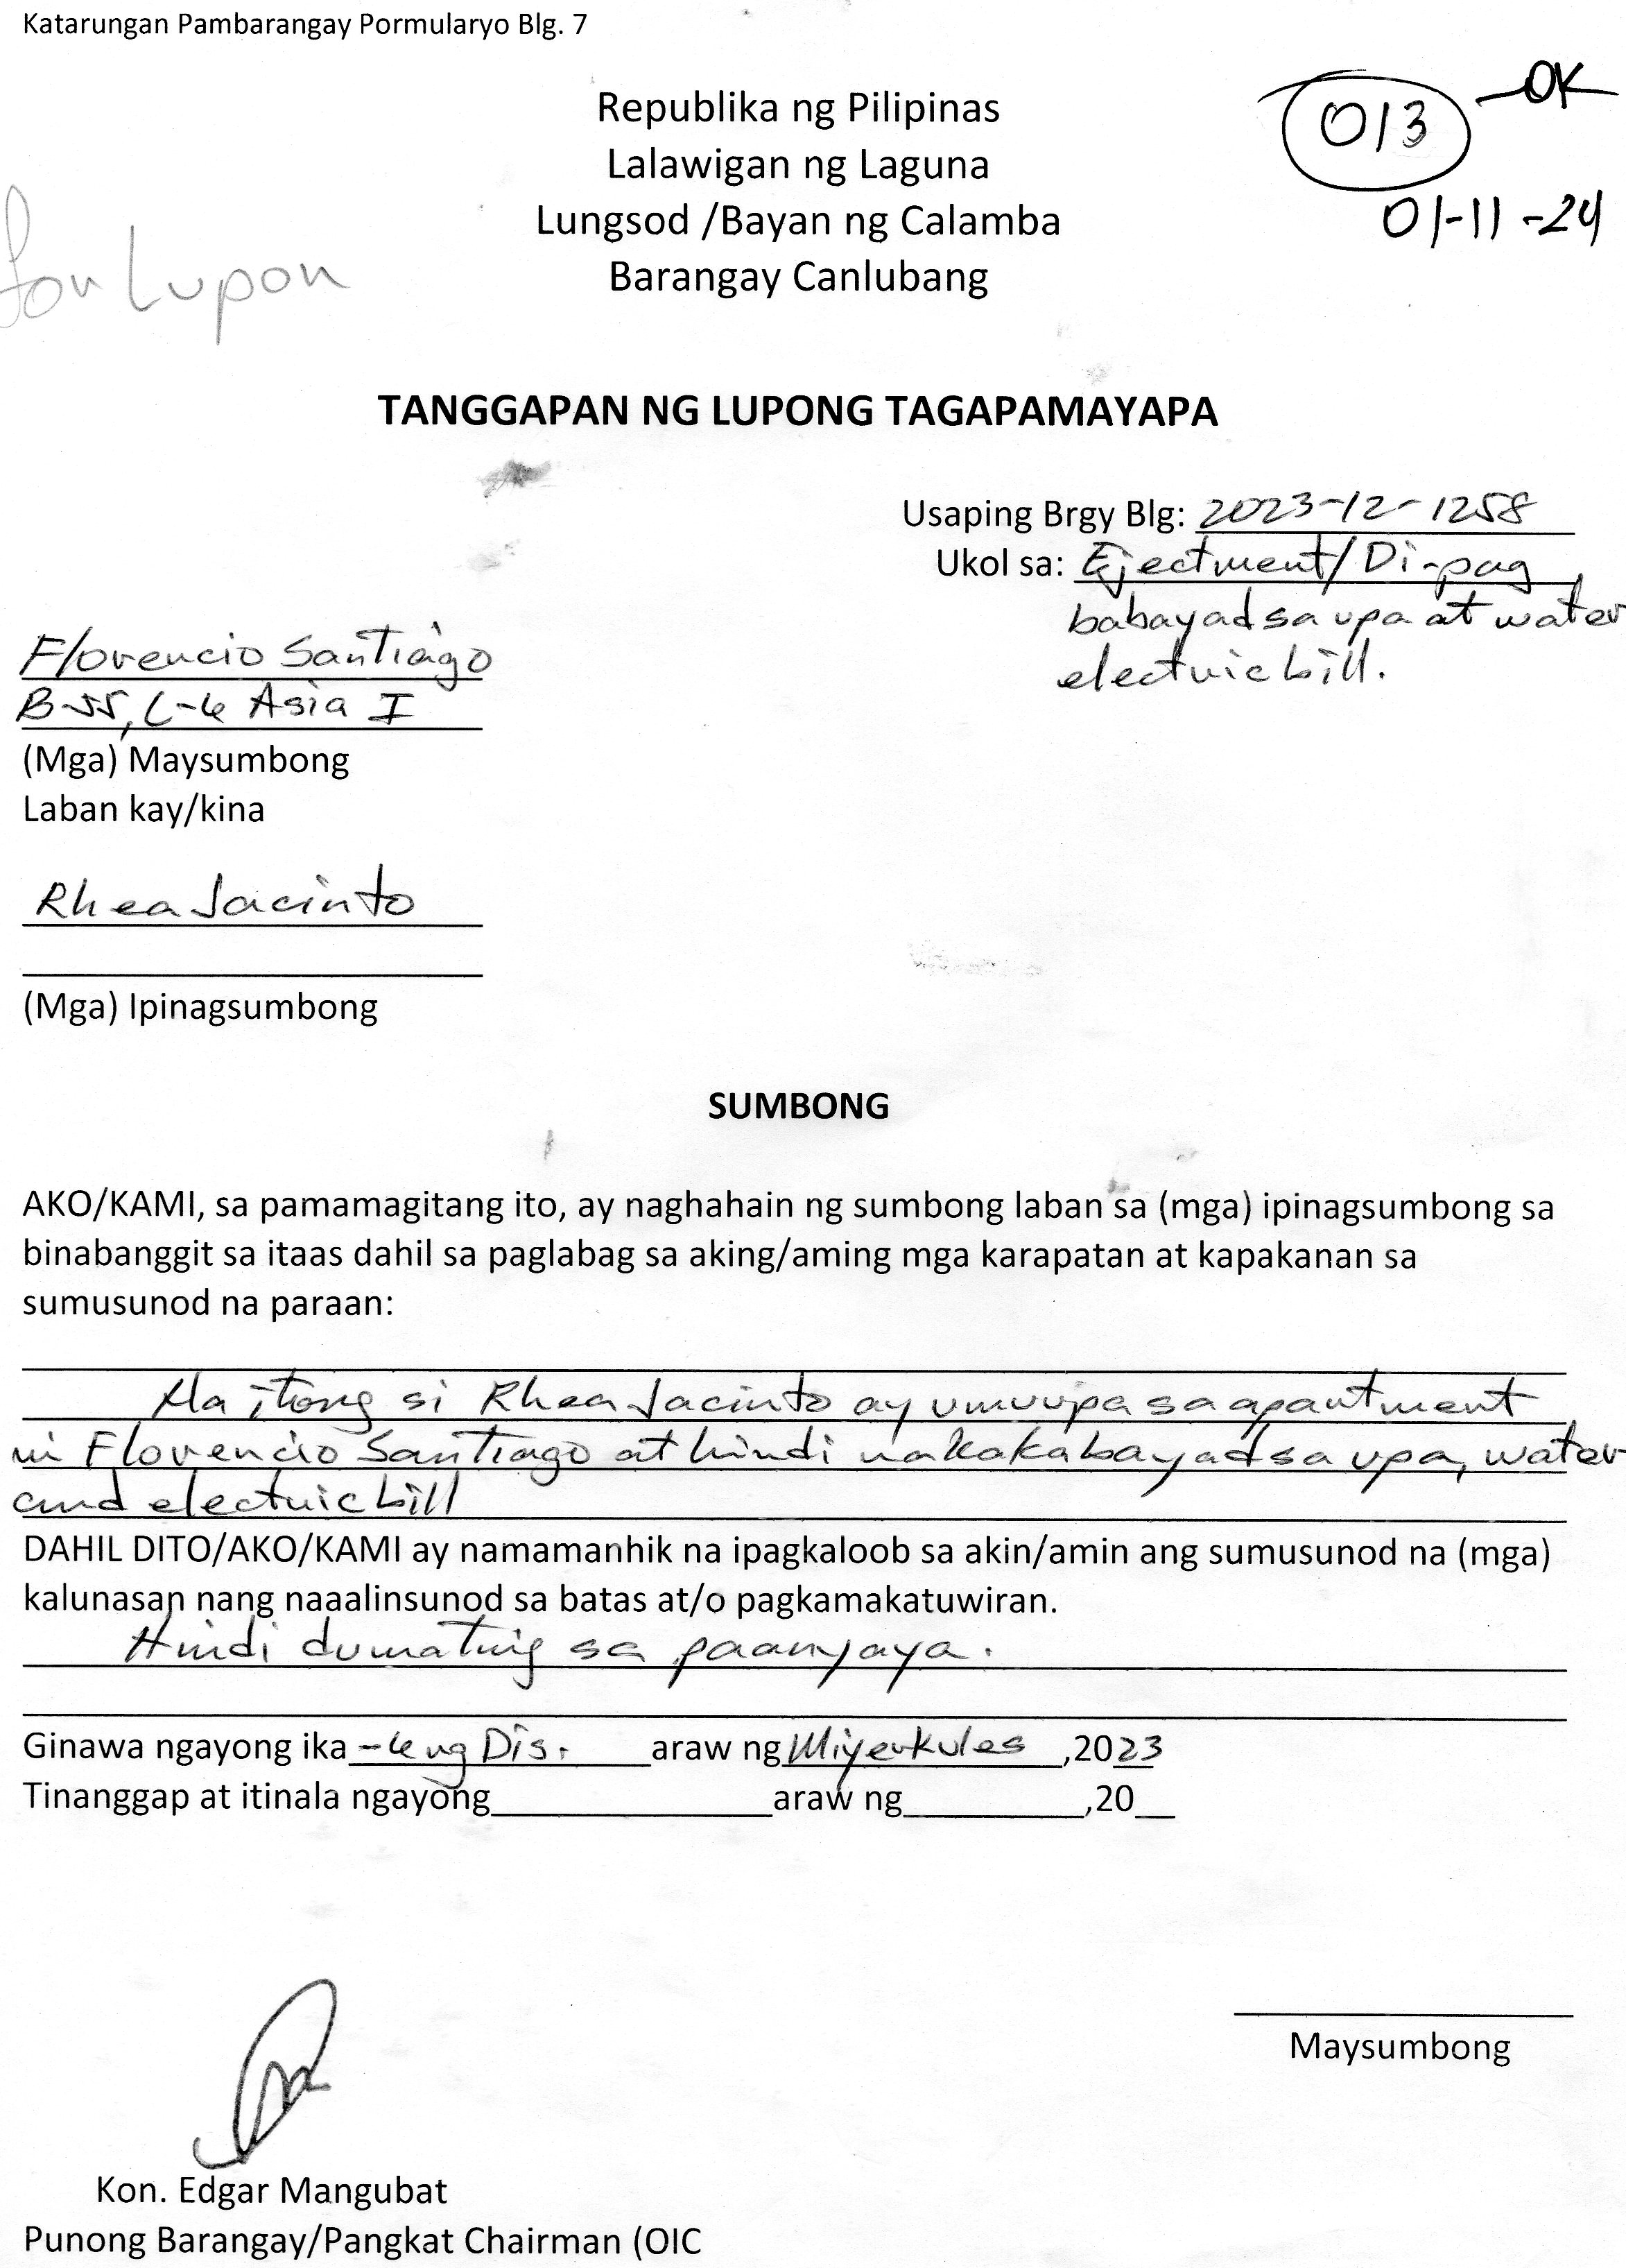 Katarungan Pambarangay Pormularyo Blg. 7
013 - OK
01-11-24
Republika ng Pilipinas
Lalawigan ng Laguna
Lungsod /Bayan ng Calamba
Barangay Canlubang
for Lupon
TANGGAPAN NG LUPONG TAGAPAMAYAPA
Usaping Brgy Blg: 2023-12-1258
Ukol sa: Ejectment/Di-pag
babayad sa upa at water
electric bill.
Florencio Santiago
B-55, L-6 Asia I
(Mga) Maysumbong
Laban kay/kina
Rhea Jacinto
(Mga) Ipinagsumbong
SUMBONG
AKO/KAMI, sa pamamagitang ito, ay naghahain ng sumbong laban sa (mga) ipinagsumbong sa
binabanggit sa itaas dahil sa paglabag sa aking/aming mga karapatan at kapakanan sa
sumusunod na paraan:
Na itong si Rhea Jacinto ay umuupa sa apartment
ni Florencio Santiago at hindi nakakabayad sa upa, water
and electric bill
DAHIL DITO/AKO/KAMI ay namamanhik na ipagkaloob sa akin/amin ang sumusunod na (mga)
kalunasan nang naaalinsunod sa batas at/o pagkamakatuwiran.
Hindi dumating sa paanyaya.
Ginawa ngayong ika -6 ng Dis. araw ng Miyerkules ,2023
Tinanggap at itinala ngayong______________araw ng_________,20__
Maysumbong
Kon. Edgar Mangubat
Punong Barangay/Pangkat Chairman (OIC